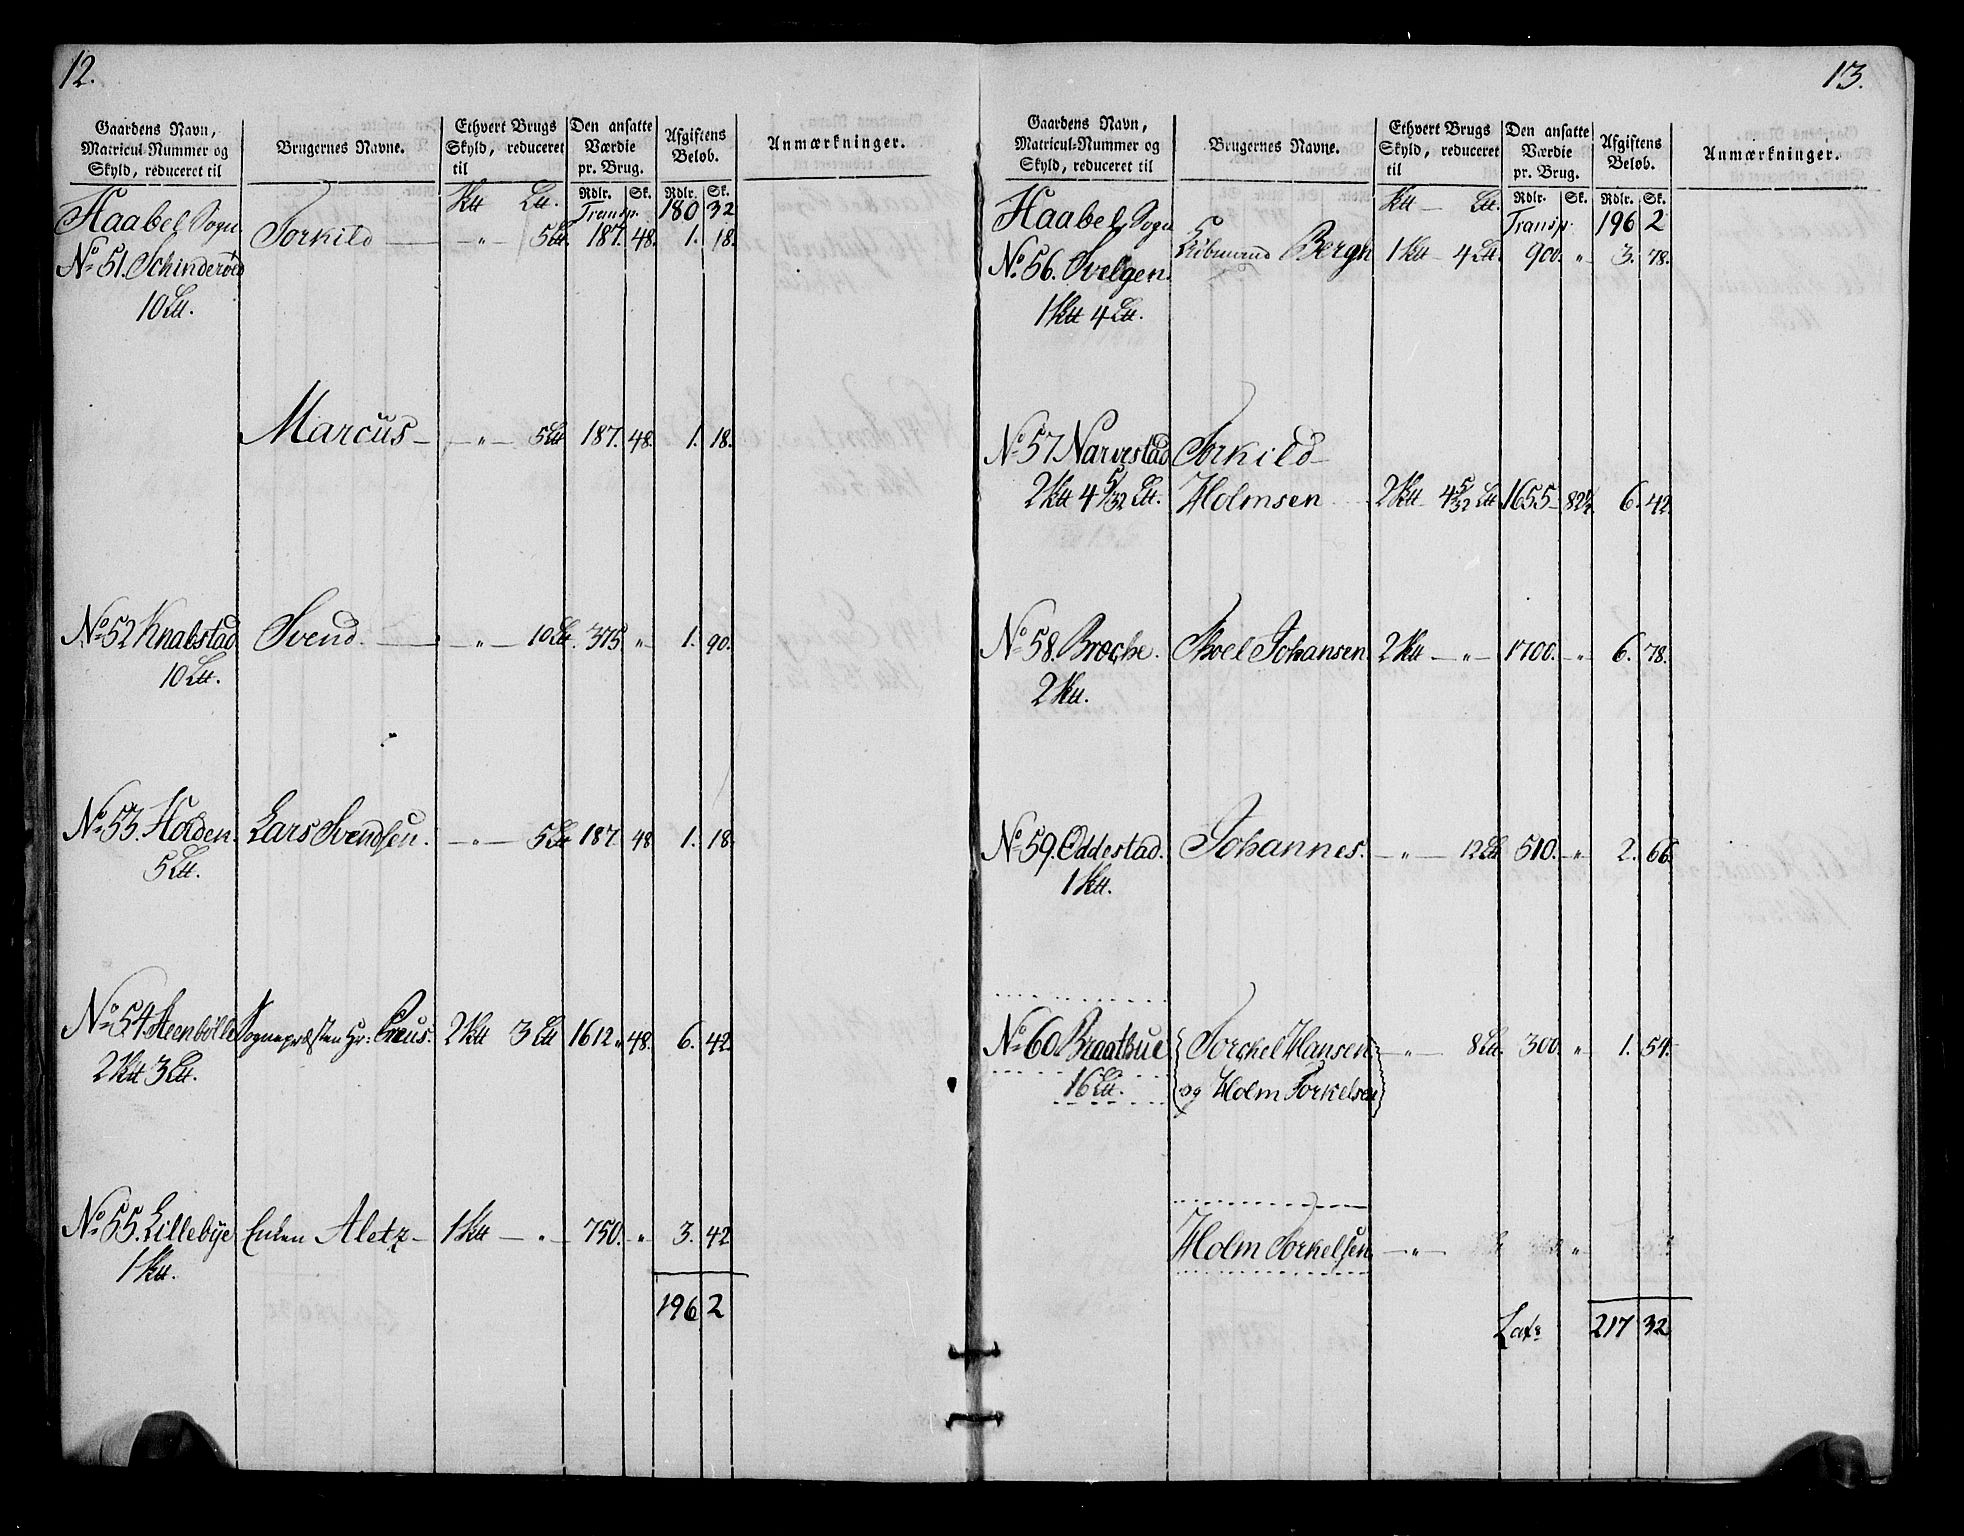 12.
Gaardens Navn, Matricul-Nummer og Skyld, reduceret til
Brugernes Navne.
Ethvert Brugs Skyld, reduceret til
Den ansatte Værdie pr. Brug.
Afgiftens Beløb.
Anmærkninger.
Rdlr. Sk. Rdlr. Sk.
Haabel Sogn Transp. 180 32
No 51. Schinderød Torkild — „ — 5 Lt. 187. 48. 1. 18.
10 Lt.
Marcus — „ — 5 Lt 187. 48. 1. 18.
No 52 Knabstad Svend. — „ — 10 Lt. 375 „ 1. 90.
10 Lt.
No 53. Holden. Lars Svendsen. — „ — 5 Lt 187 48 1. 18.
5 Lt.
No 54. Steenbølle Sognepræsten Hr: Creus. 2 Ktt 3 Lt 1612 „ 48. 6. 42.
2 Ktt 3 Lt.
No 55. Lillebye Enken Aletz — 1 Ktt — „ — 750. „ 3. 42
1 Ktt.
196 2
13.
Gaardens Navn, Matricul-Nummer og Skyld, reduceret til
Brugernes Navne.
Ethvert Brugs Skyld, reduceret til
Den ansatte Værdie pr. Brug.
Afgiftens Beløb.
Anmærkninger.
Rdlr. Sk. Rdlr. Sk.
Haabel Sogn Transp. 196 2
No. 56. Svelgen. Bergh 1 Ktt — 4 Lt. 900. „ 3. 78.
1 Ktt 4 Lt.
No 57 Narvestad Torkild
2 Ktt 4 5/32 Lt. Holmsen 2 Ktt 4 5/32 Lt 1655 — 82½. 6. 42.
No 58. Broche. Noel Johansen 2 Ktt — „ — 1700. — „ 6. 78.
2 Ktt.
No 59. Oddestad. Johannes. — „ — 12 Lt 510. — „ 2. 66.
1 Ktt.
No 60. Braathue Torckel Hansen — „ — 8 Lt. 300. „ 1. 54.
16 Lt. og Holm Torkelsen
Holm Torkelsen — „ — „
Lats 217 32